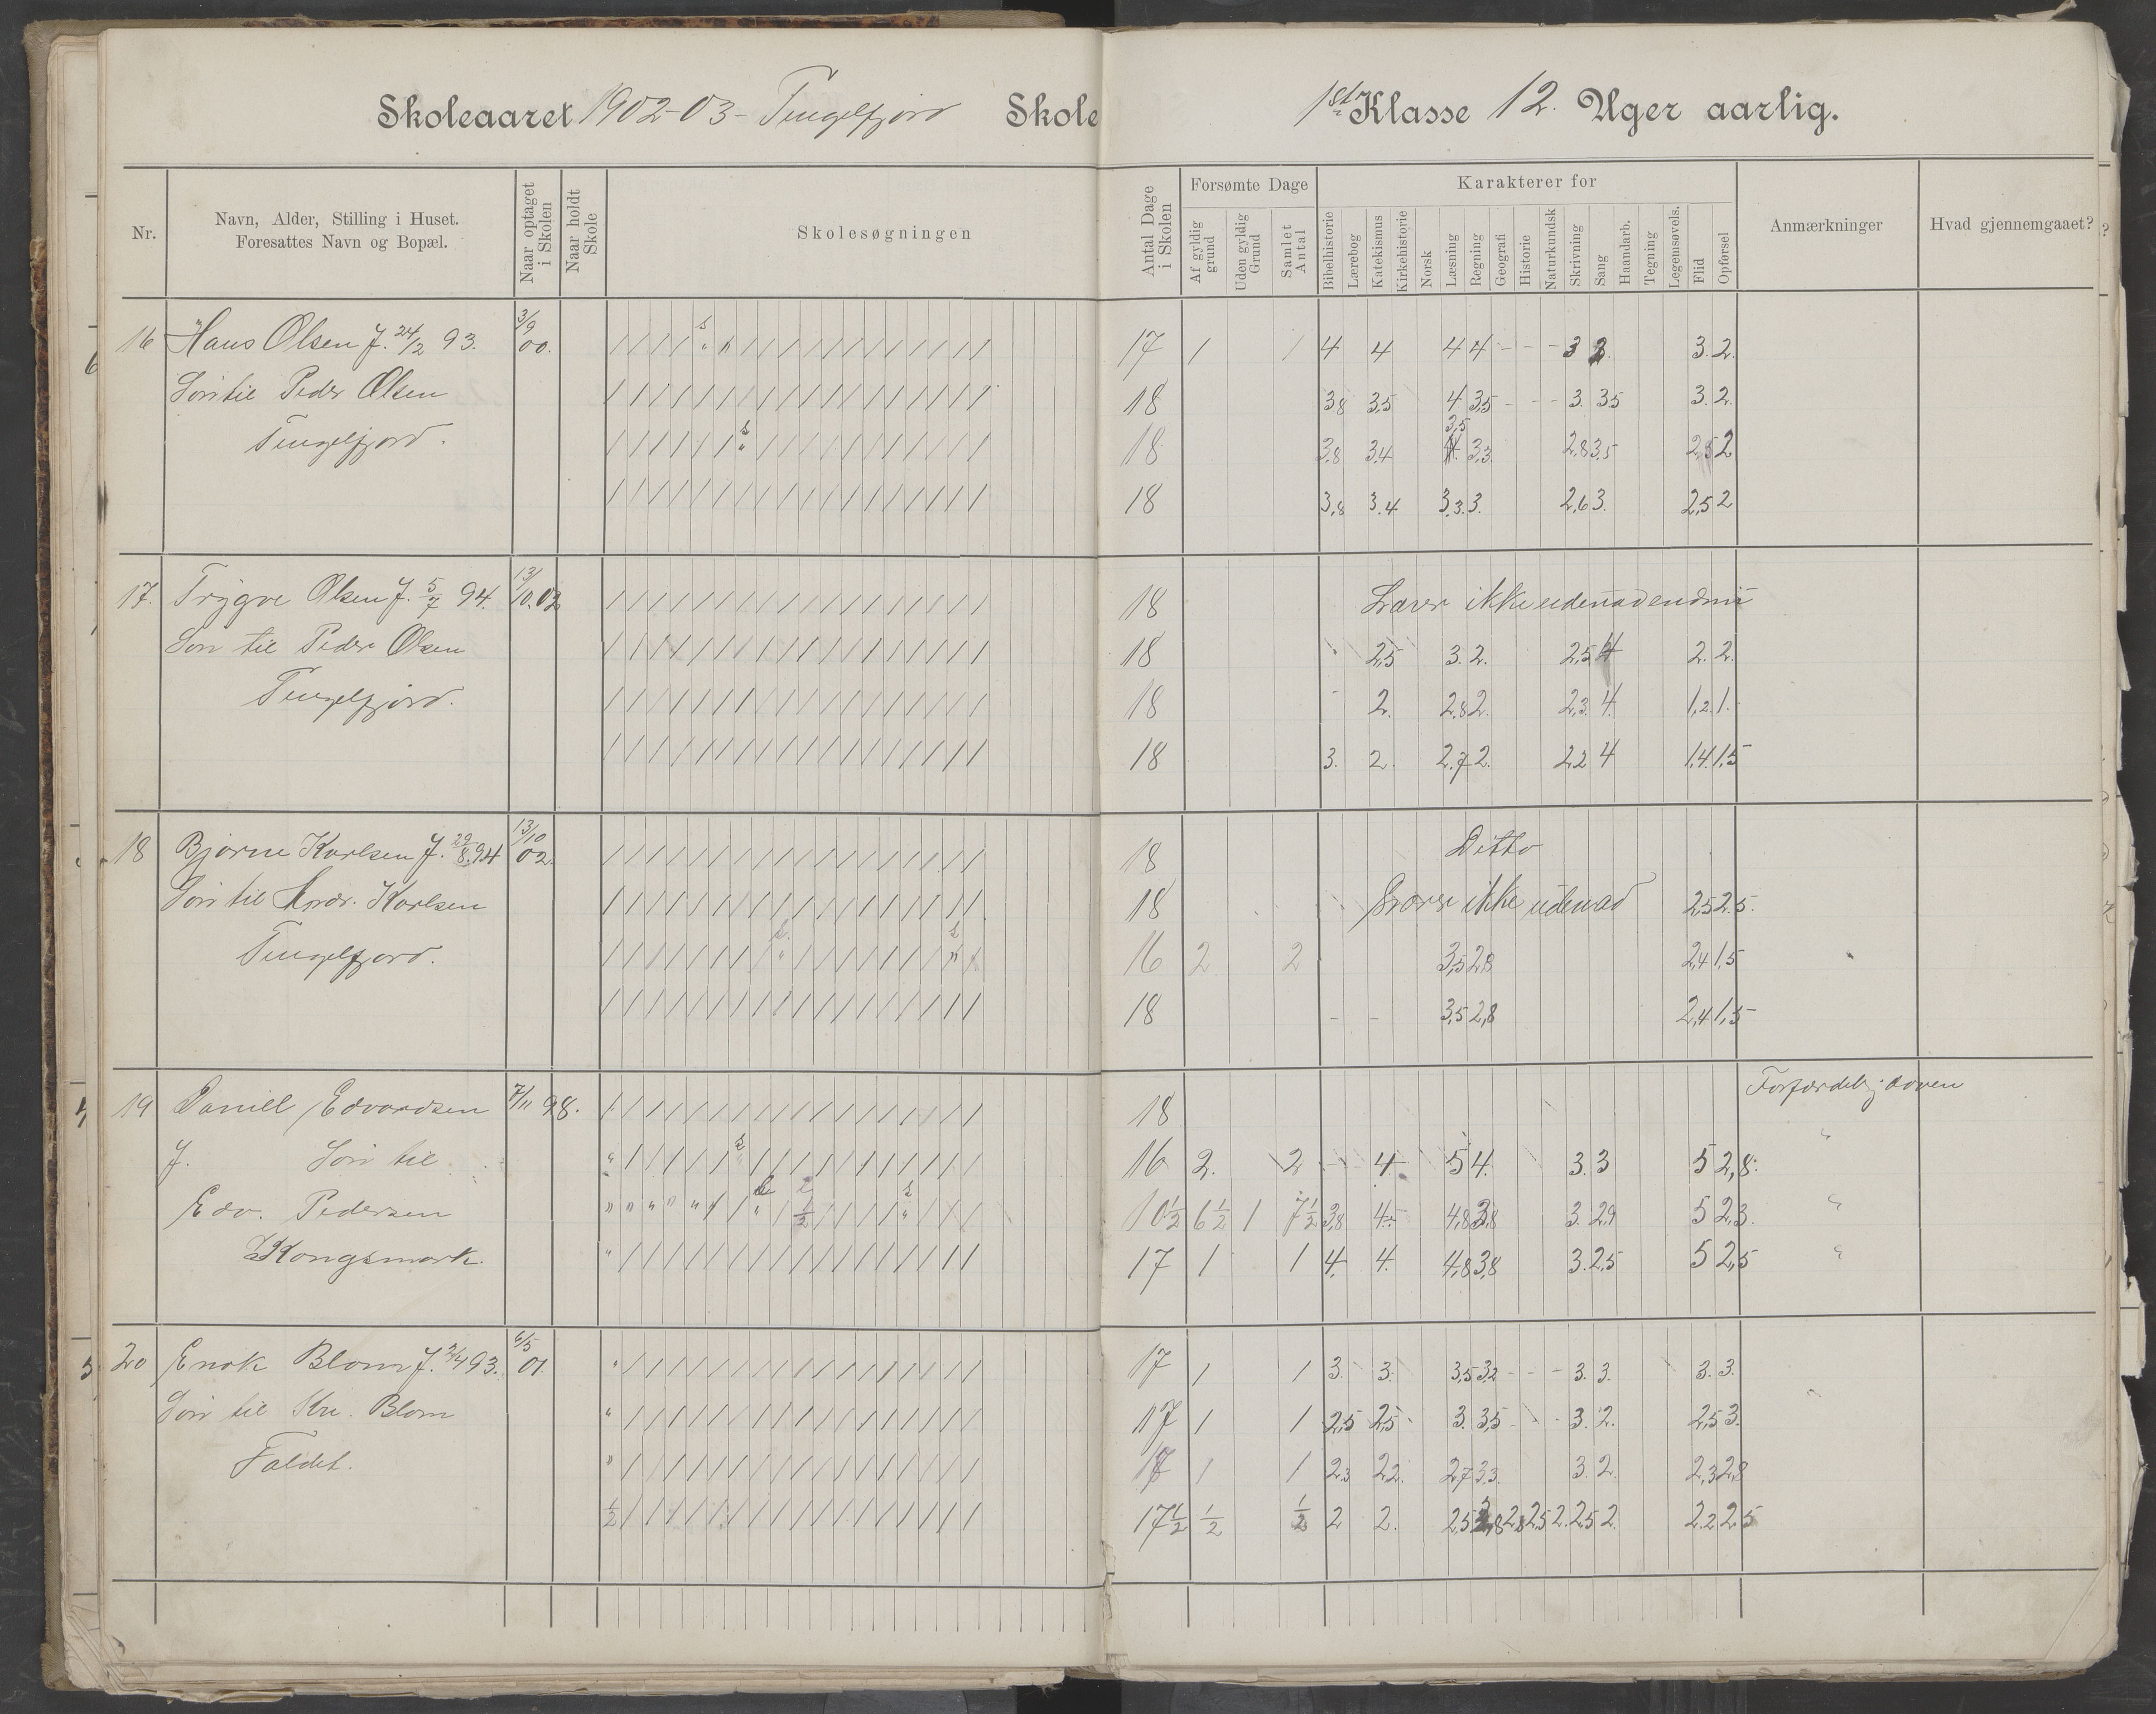 Skoleaaret 1902-03 - Tengelfjord Skole 1ste Klasse 12. Uger aarlig.
Nr.
Navn, Alder, Stilling i Huset.
Foresattes Navn og Bopæl.
Naar optaget i Skolen
Naar holdt Skole
Skolesøgningen
Antal Dage i Skolen
Forsømte Dage
Af gyldig grund
Uden gyldig Grund
Samlet Antal
Karakterer for
Bibelhistorie
Lærebog
Katekismus
Kirkehistorie
Norsk
Læsning
Regning
Geografi
Historie
Naturkundsk
Skrivning
Sang
Haandarb.
Tegning
Legemsøvels.
Flid
Opførsel
Anmærkninger
Hvad gjennemgaaet?
16 Hans Olsen f. 24/2 93. 3/9 00. 17 1 1 4 4 4 4 - - - 3 3. 3. 2.
Søn til Peder Olsen 18 3,8 3,5 4 3,5 - - - 3. 3,5 3. 2.
Tengelfjord. 18 3,8 3,4 3,5 3,3 2,8 3,5 2,5 2
18 3,8 3,4 3,3 3. 2,6 3. 2,5 2
17. Trygve Olsen f. 5/7 94. 13/10. 02 18 Lærer ikke udenad endnu
Søn til Peder Olsen 18 2,5 3. 2. 2,5 4 2. 2.
Tengelfjord. 18 2. 2,8 2. 2,3. 4. 1,2. 1.
18 3. 2. 2,7 2. 2,2 4 1,4. 1,5
18 Bjarne Karlsen f. 29/8. 94 13/10 02. 18 Ditto
Søn til Andr. Karlsen 18 Lærer ikke udenad 2,5 2,5.
Tengelfjord. 16 2 2 3,5 2,8 2,4 1,5
18 - - 3,5 2,8 2,4 1,5
19 Daniel Edvardsen 7/11 98. 18 Forfærdelig doven
f. Søn til 16 2. 2 4. 5 4. 3. 3 5 2,8. "
Edv. Pedersen 10 1/2 6 1/2 1 7 1/2 3,8 4 4,8 3,8 3. 2,9 5 2,3. "
Kongsmark. 17 1 1 4. 4. 4,8 3,8 3. 2,5 5 2,5 "
20 Enok Blom f. 2/4 93. 6/5 01. 17 1 1 3. 3. 3,5 3,2 - - - 3. 3. 3. 3.
Søn til Kr. Blom 17 1 1 2,5 2,5 3. 3,5 3. 2. 2,5 3.
Faldet. 17 1 1 2,3 2,2. 2,7 3,3. 3. 2. 2,3 2,8
17 1/2 1/2 1/2 2 2. 2,5 2,8 2,8 2,5 2. 2,5 2. 2,2 2,5